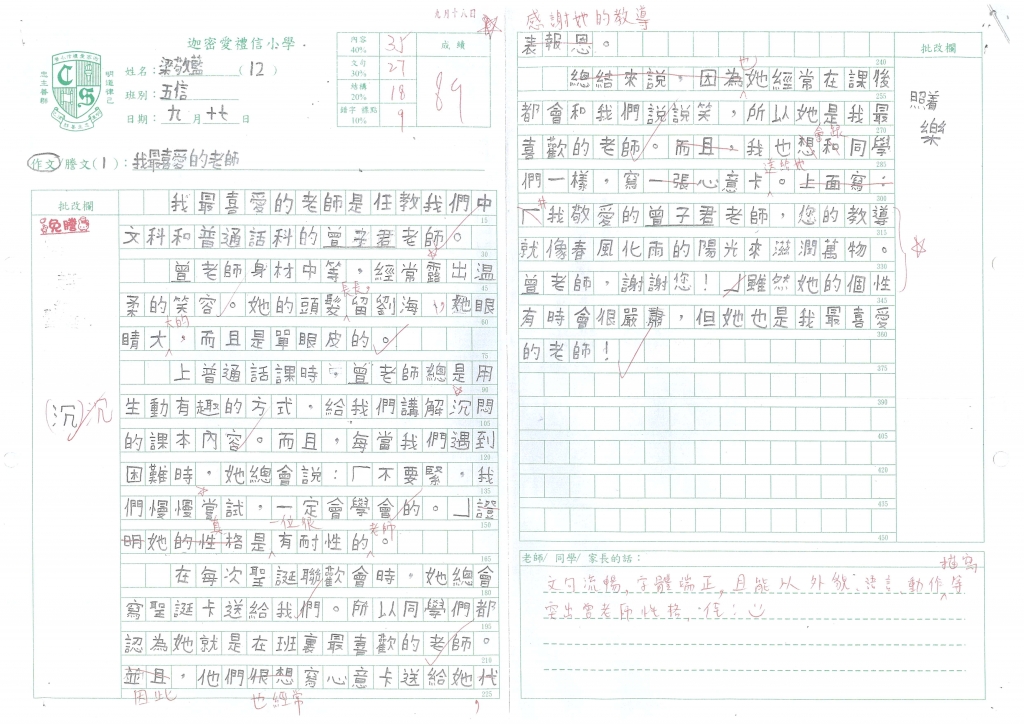 九月十八日
迦密愛禮信小學
姓名：梁敬藍（12）
班別：五信
日期：九月十七日
內容 40% 35
文句 30% 27
結構 20% 18
錯字 標點 10% 9
成績
89
作文/謄文(1)：我最喜愛的老師
批改欄
免謄
我最喜愛的老師是任教我們中
15
文科和普通話科的曾子君老師。
曾老師身材中等，經常露出溫
45
長長
柔的笑容。她的頭髮留劉海，她眼
60
大的
睛大，而且是單眼皮的。
75
上普通話課時，曾老師總是用
90
(沉)沉
生動有趣的方式，給我們講解沉悶
105
的課本內容。而且，每當我們遇到
120
困難時，她總會說：「不要緊，我
135
們慢慢嘗試，一定會學會的。」證
150
真 一位很 老師
明她的性格是有耐性的。
165
在每次聖誕聯歡會時，她總會
180
寫聖誕卡送給我們。所以同學們都
195
認為她就是在班裏最喜歡的老師。
210
並且，他們很想寫心意卡送給她代
225
因此 也經常
感謝她的教導
表報恩。
240
也
總結來說，因為她經常在課後
255
都會和我們說說笑，所以她是我最
270
喜歡的老師。而且，我也想和同學
285
送給她
們一樣，寫一張心意卡。上面寫：
300
「我敬愛的曾子君老師，您的教導
315
就像春風化雨的陽光來滋潤萬物。
330
曾老師，謝謝您！」雖然她的個性
345
有時會很嚴肅，但她也是我最喜愛
360
的老師！
375
390
405
420
435
450
批改欄
照着
樂
老師/ 同學/ 家長的話：
描寫
文句流暢，字體端正，且能從外貌、語言、動作等
突出曾老師性格，佳！